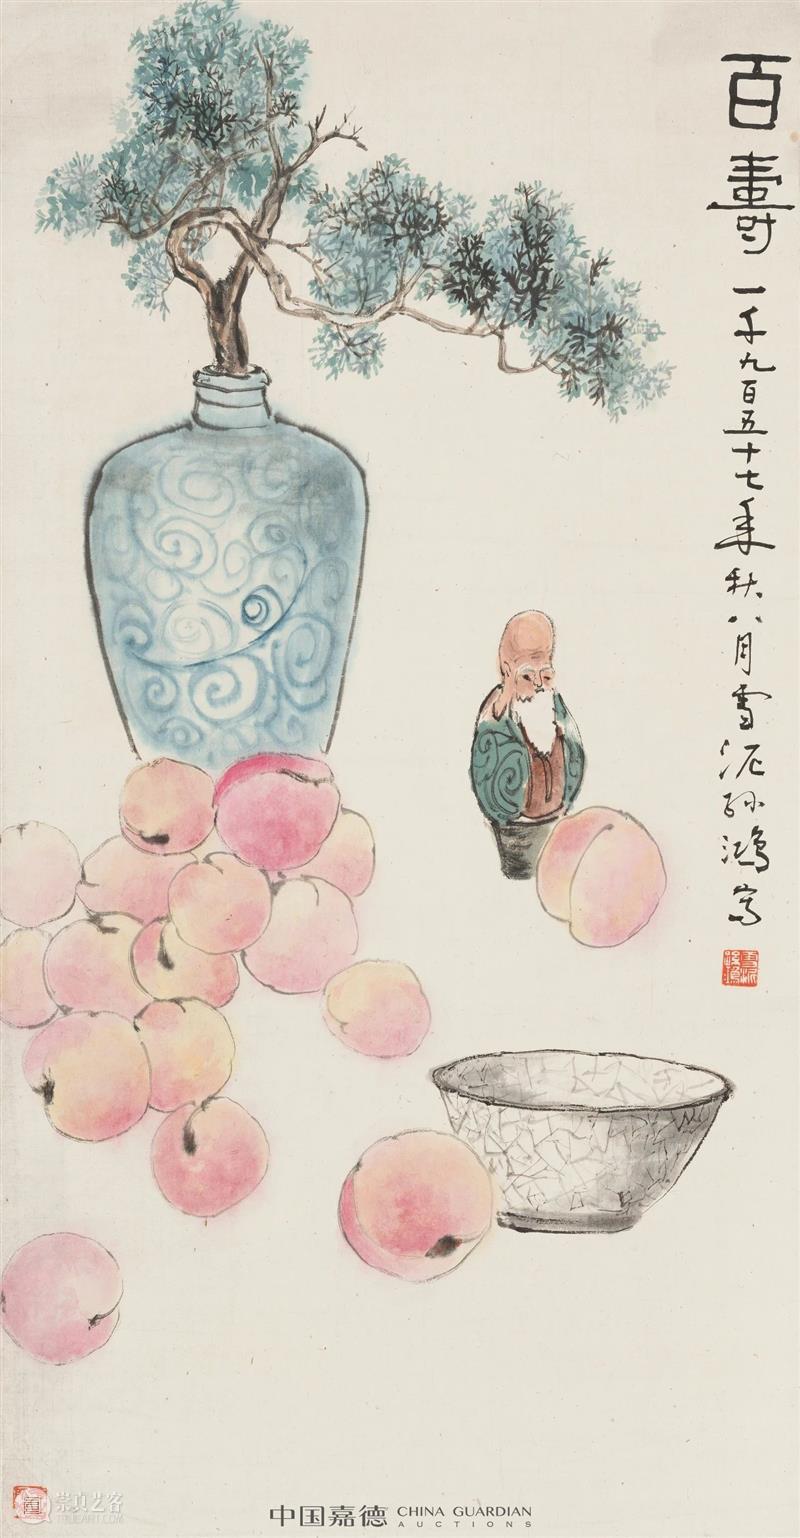 百寿
一千九百五十七年秋八月雪泥孙鸿写
崇真艺客
中国嘉德 CHINA GUARDIAN
AUCTIONS